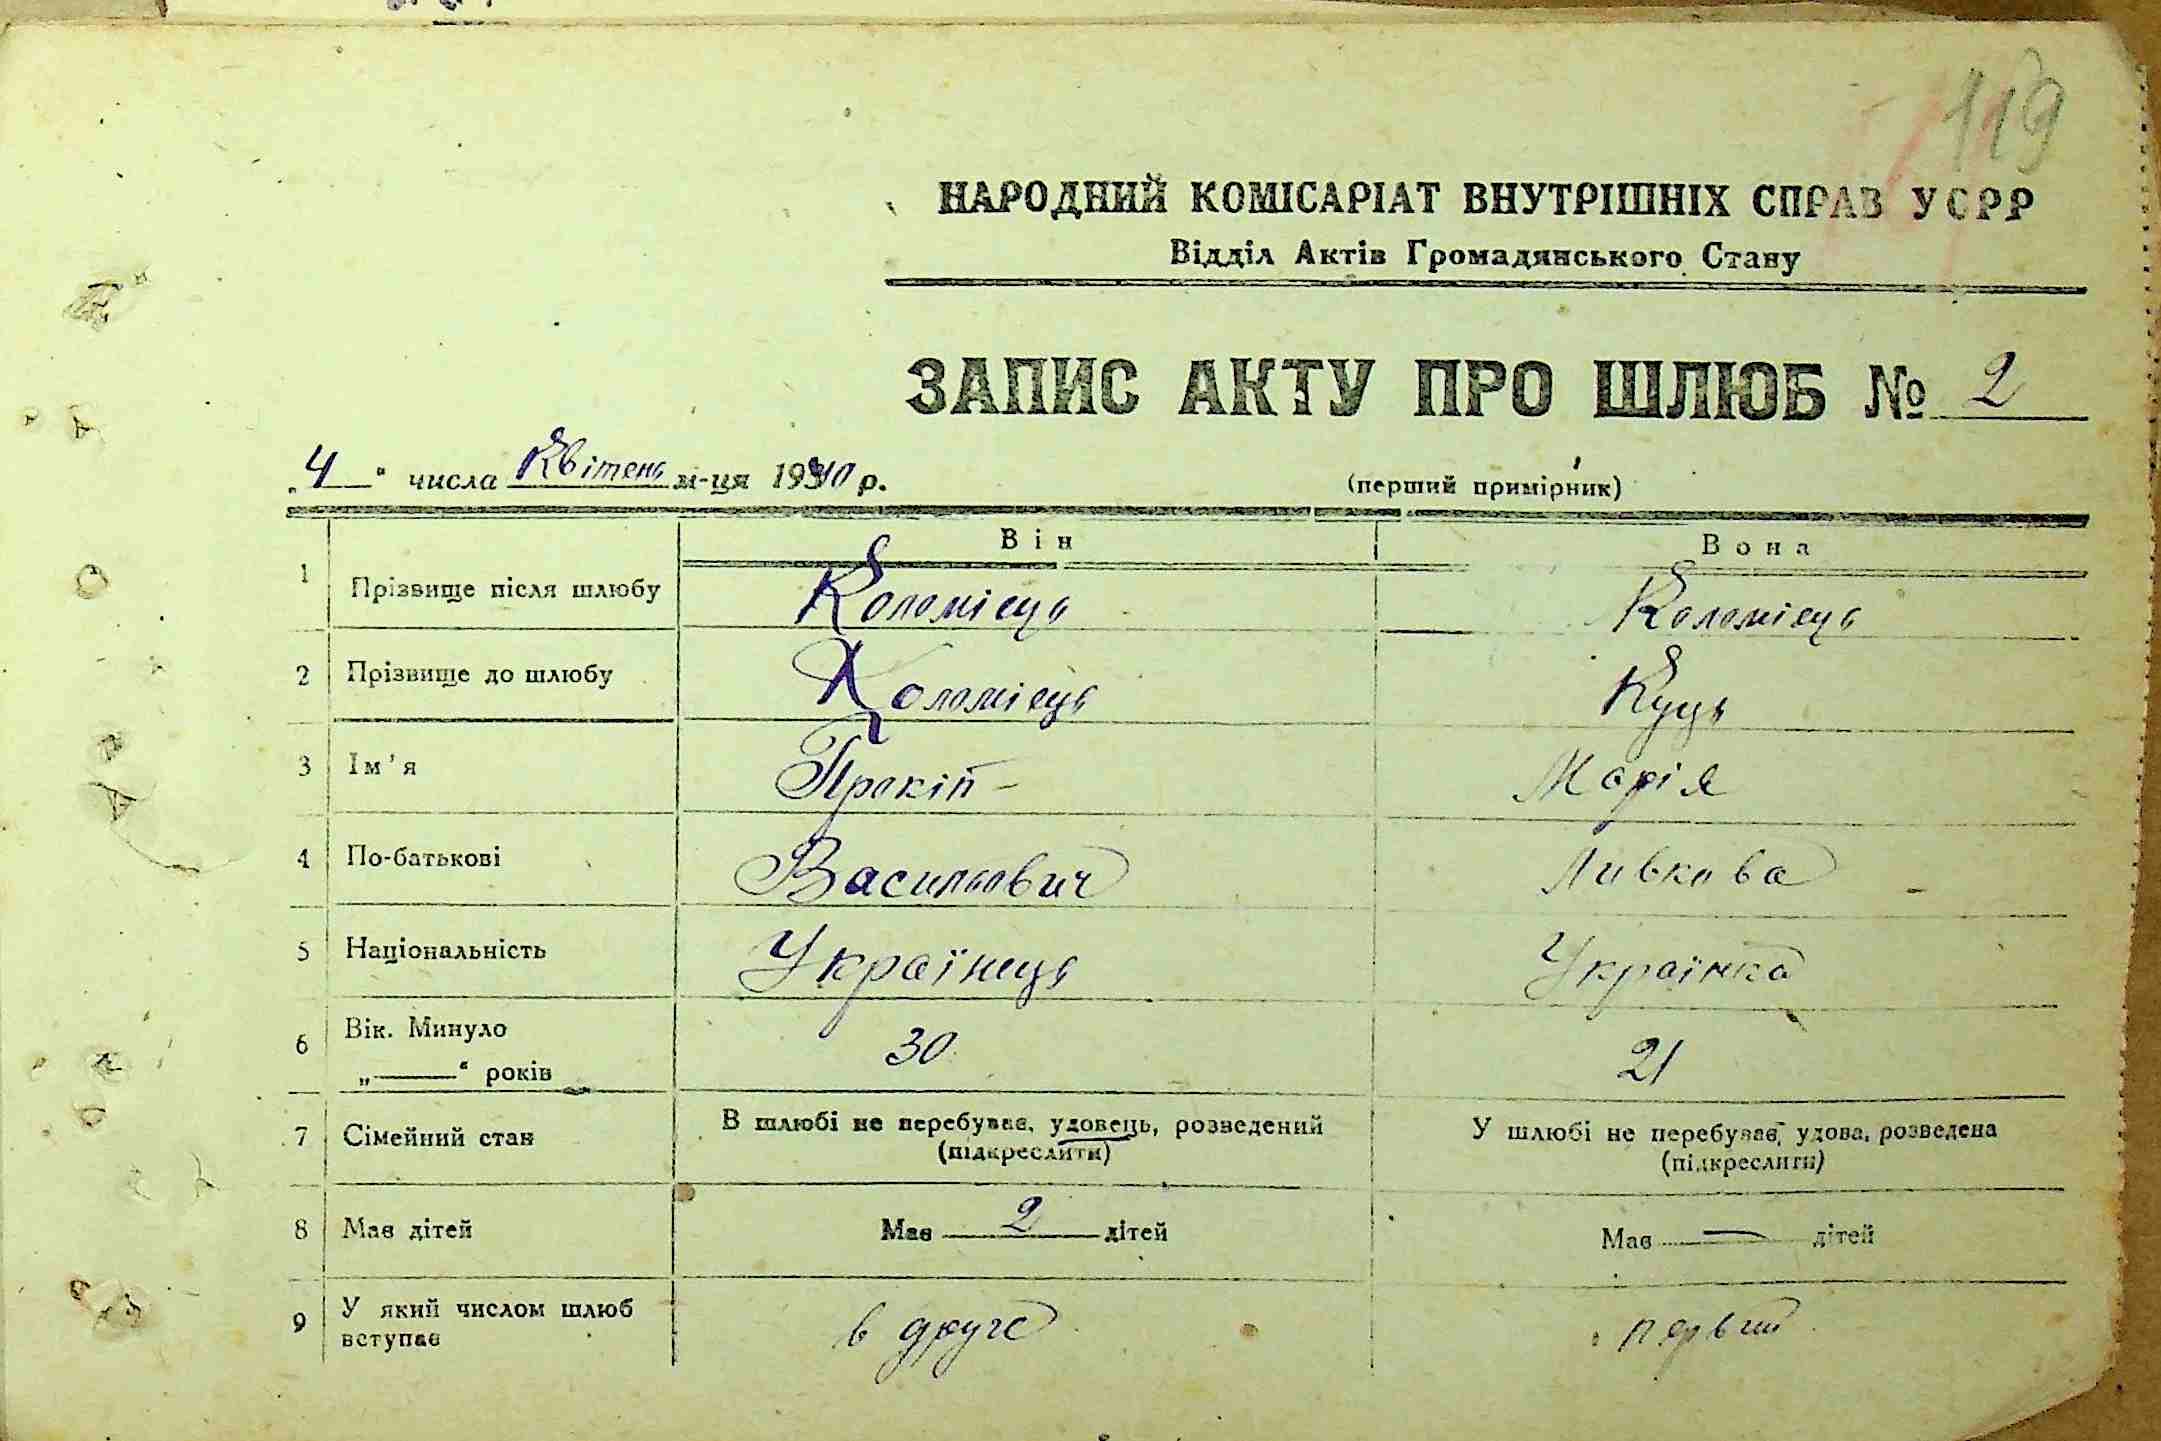 119
НАРОДНИЙ КОМІСАРІАТ ВНУТРІШНІХ СПРАВ УСРР
Відділ Актів Громадянського Стану
ЗАПИС АКТУ ПРО ШЛЮБ № 2
„4" числа Квітень м-ця 1940 р.
(перший примірник)
Він Вона
1 Прізвище після шлюбу Коломієць Коломієць
2 Прізвище до шлюбу Коломієць Куць
3 Ім'я Прокіп - Марія
4 По-батькові Васильович Ливкова
5 Національність Українець Українка
6 Вік. Минуло 30 21
„——" років
7 Сімейний стан В шлюбі не перебуває, удовець, розведений У шлюбі не перебуває, удова, розведена
(підкреслити) (підкреслити)
8 Має дітей Має 2 дітей Має — дітей
9 У який числом шлюб в друге первий
вступає